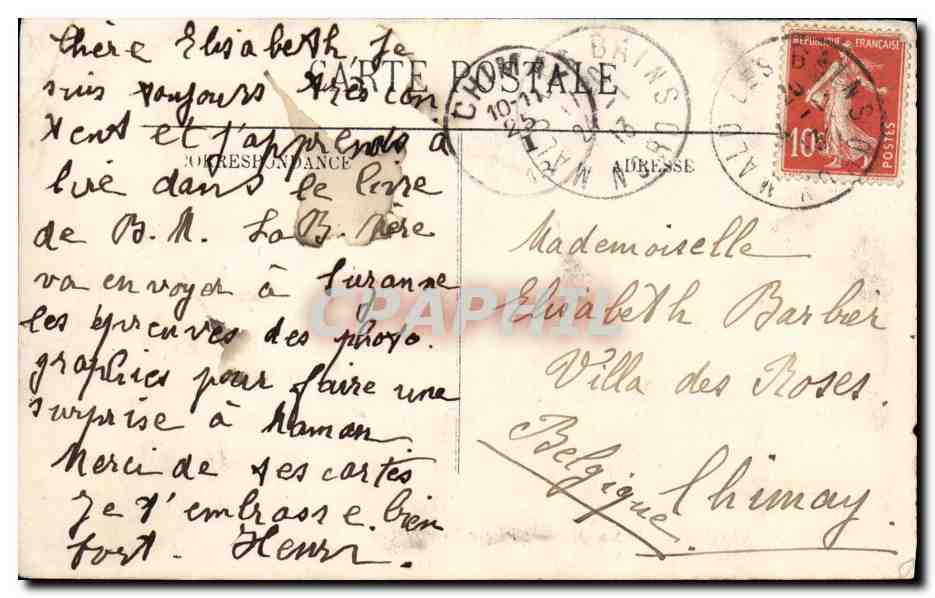 Chère Elisabeth, Je
suis toujours très con
tent et j'apprends à
lire dans le livre
de B. M. La B. Mère
va envoyer à Suzanne
les épreuves des photo.
graphies pour faire une
surprise à Maman
Merci de tes cartes
Je t'embrasse bien
fort. Henri
CARTE POSTALE
CORRESPONDANCE
ADRESSE
CHIMAY
10-11
25
BAINS
NORD
MALO
13
MALO LES BAINS
REPUBLIQUE FRANÇAISE
10
POSTES
Mademoiselle
Elisabeth Barbier
Villa des Roses.
Chimay.
Belgique
CPAPHIL